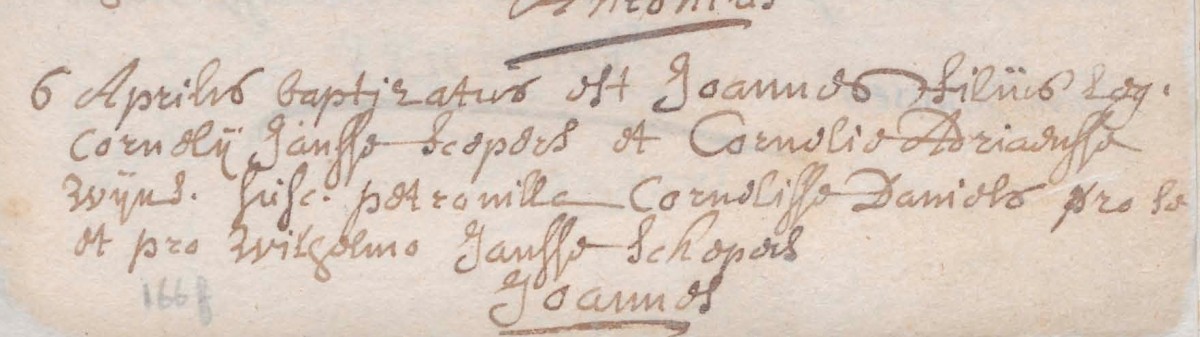 Antonius
6 Aprilis baptizatus est Joannes filius Leg.
Cornelij Jansse Scepers et Cornelie Adriaensse
Wijns. susc. petronilla Cornelisse Daniels pro se
et pro Wilhelmo Jansse Schepers
Joannes